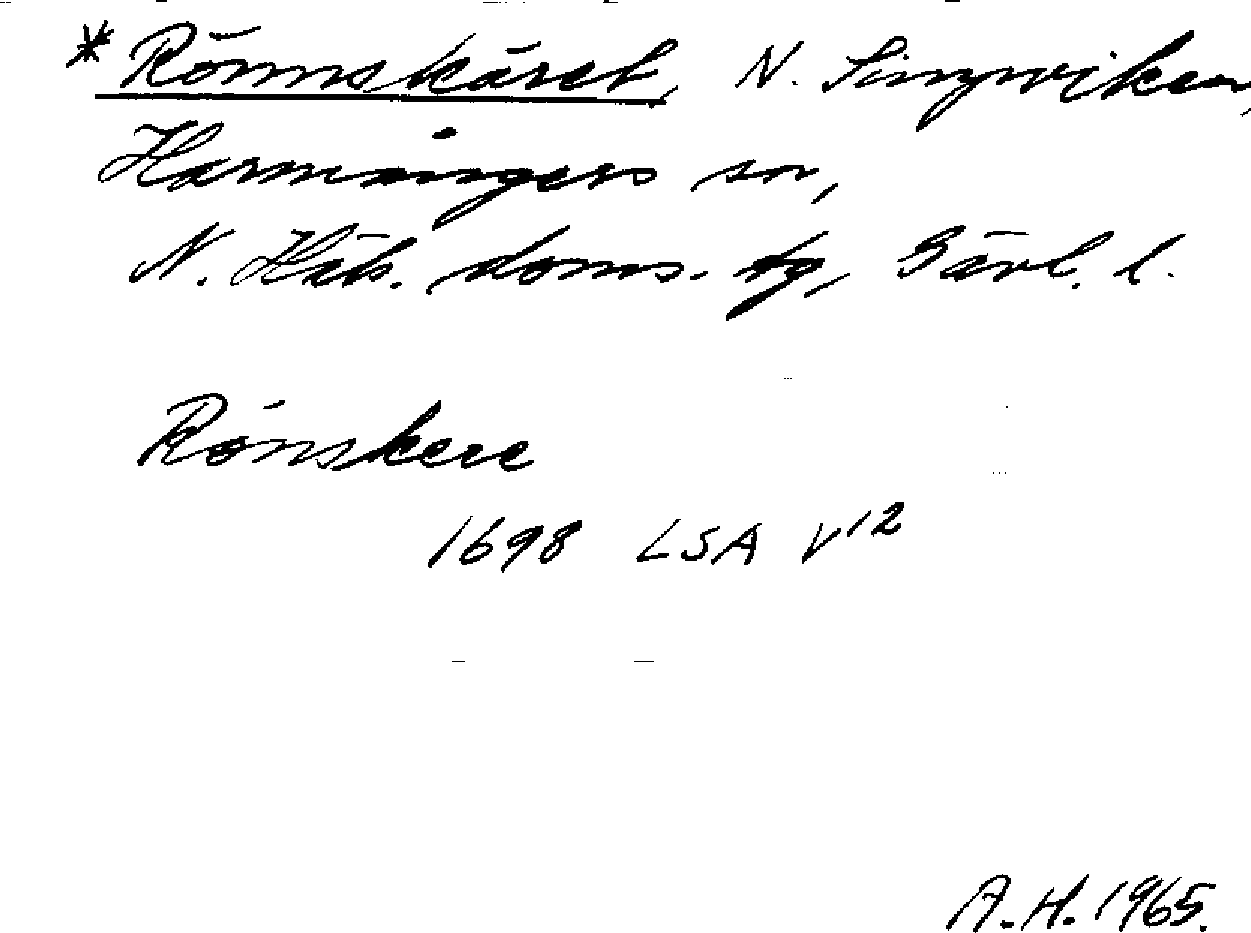 *Rönnskäret, N. Lingviken,
Harmångers sn,
N. Häls. doms. tg, Gävl. l.
Rönskere
1698 LSA V12
A.H. 1965.